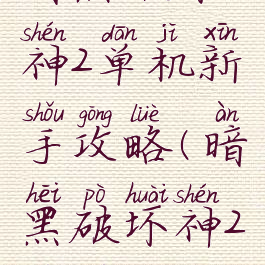 shén dān jī xīn
神2单机新
shǒu gōng lüè àn
手攻略(暗
hēi pò huài shén
黑破坏神2